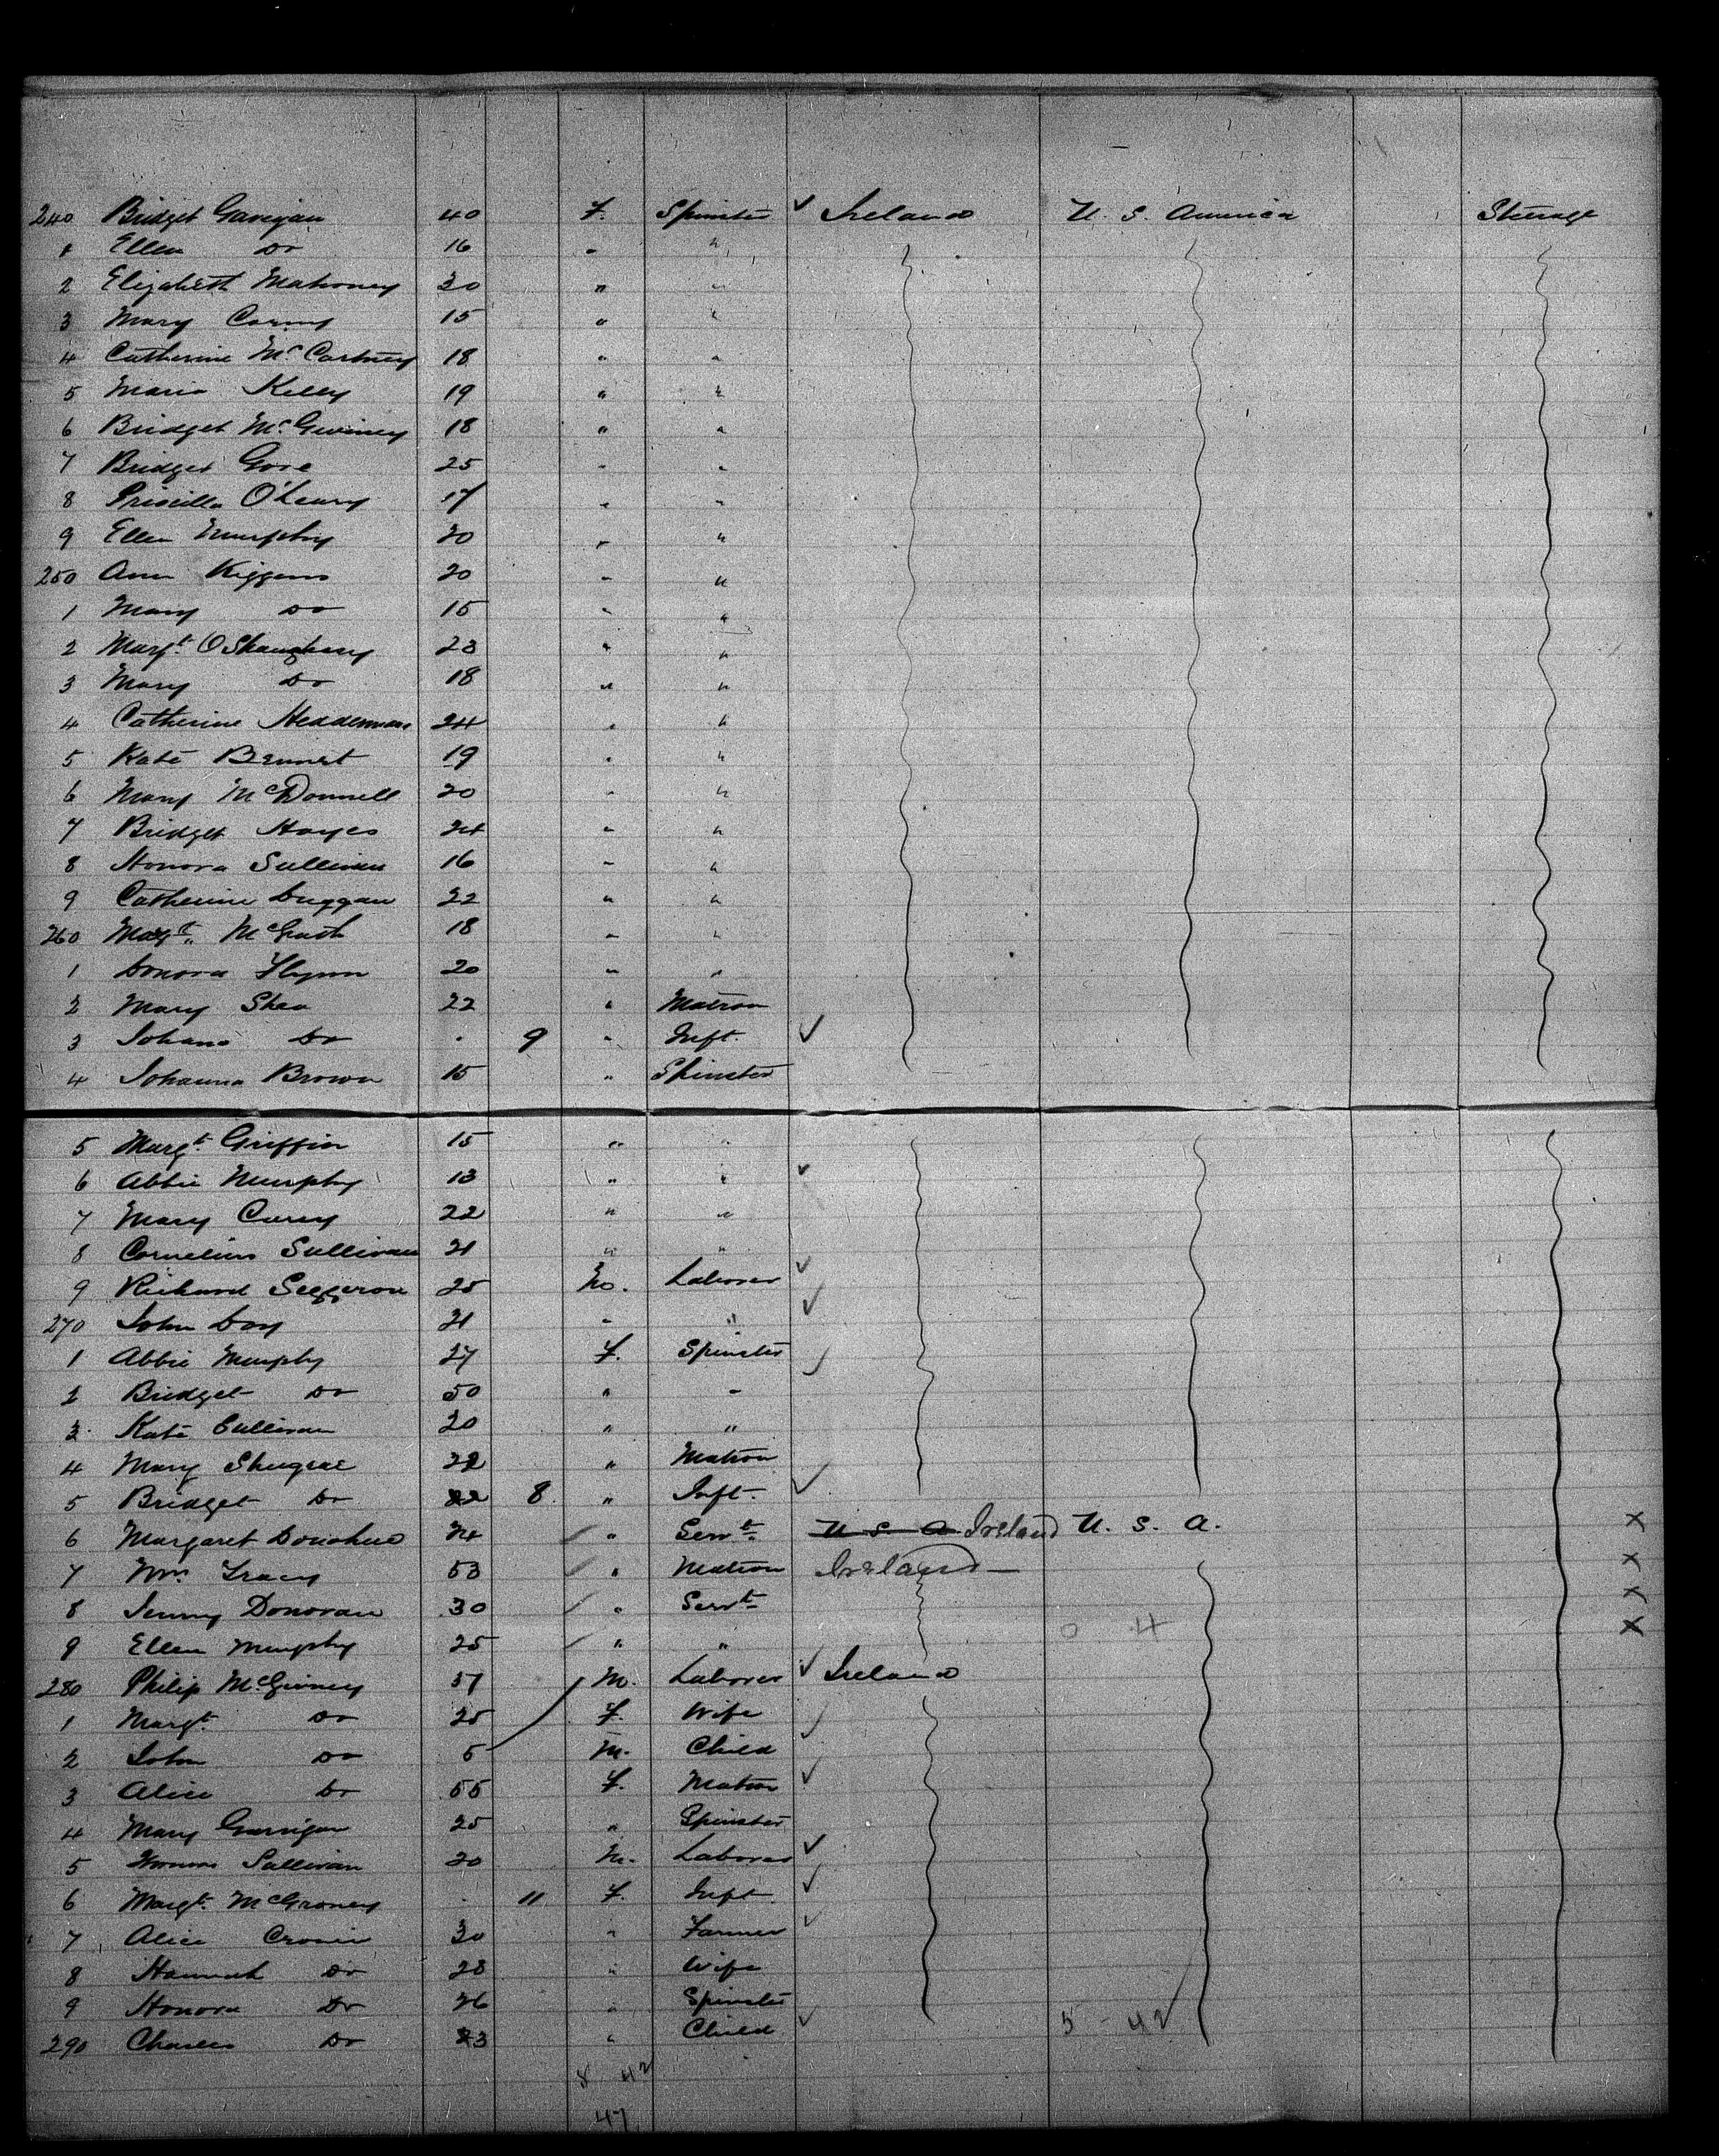 240 Bridget Garrigan 40 F. Spinster ✓ Ireland U. S. America Steerage
1 Ellen Do 16 " "
2 Elizabeth Mahoney 30 " "
3 Mary 15 " "
4 Catherine McCartney 18 " "
5 Maria Kelly 19 " "
6 Bridget McGiviney 18 " "
7 Bridget Gore 25 " "
8 Priscilla O'Leary 17 " "
9 Ellen Murphy 20 " "
250 Ann Kiggens 20 " "
1 Mary Do 15 " "
2 Margt. OShaughnesy 23 " "
3 Mary Do 18 " "
4 Catherine Hedderman 24 " "
5 Kate Bennet 19 " "
6 Mary McDonnell 20 " "
7 Bridget Hayes 24 " "
8 Honora Sullivan 16 " "
9 Catherine Duggan 22 " "
260 Margt. McGrath 18 " "
1 Honora Flynn 20 " "
2 Mary Shea 22 " Matron
3 Johana Do 9 " Inft. ✓
4 Johanna Brown 15 " Spinster
5 Margt. Griffin 15 " "
6 Abbie Murphy 13 " " ✓
7 Mary Carey 22 " "
8 Cornelius Sullivan 21 " "
9 Richard 25 M. Laborer ✓
270 John Day 21 " " ✓
1 Abbie Murphy 27 F. Spinster ✓
2 Bridget Do 50 " "
3 Kate Sullivan 20 " "
4 Mary Shugrue 22 " Matron
5 Bridget Do 8 " Inft. ✓
6 Margaret Donahue 24 " Servt. U S A Ireland U. S. A. X
7 Wm. Tracy 53 " Matron Ireland X
8 Jenny Donovan 30 " Servt X
9 Ellen Murphy 25 " " 0 4 X
280 Philip McGivney 57 M. Laborer ✓ Ireland
1 Margt. Do 25 F. Wife ✓
2 John Do 5 M. Child ✓
3 Alice Do 55 F. Matron ✓
4 Mary Garrigan 25 " Spinster
5 Sullivan 20 M. Laborer ✓
6 Margt. 11 F. Inft ✓
7 Alice Cronin 30 " Farmer ✓
8 Hannah Do 28 " Wife
9 Honora Do 26 " Spinster
290 Charles Do 3 " Child ✓ 5 - 42
5 42
47